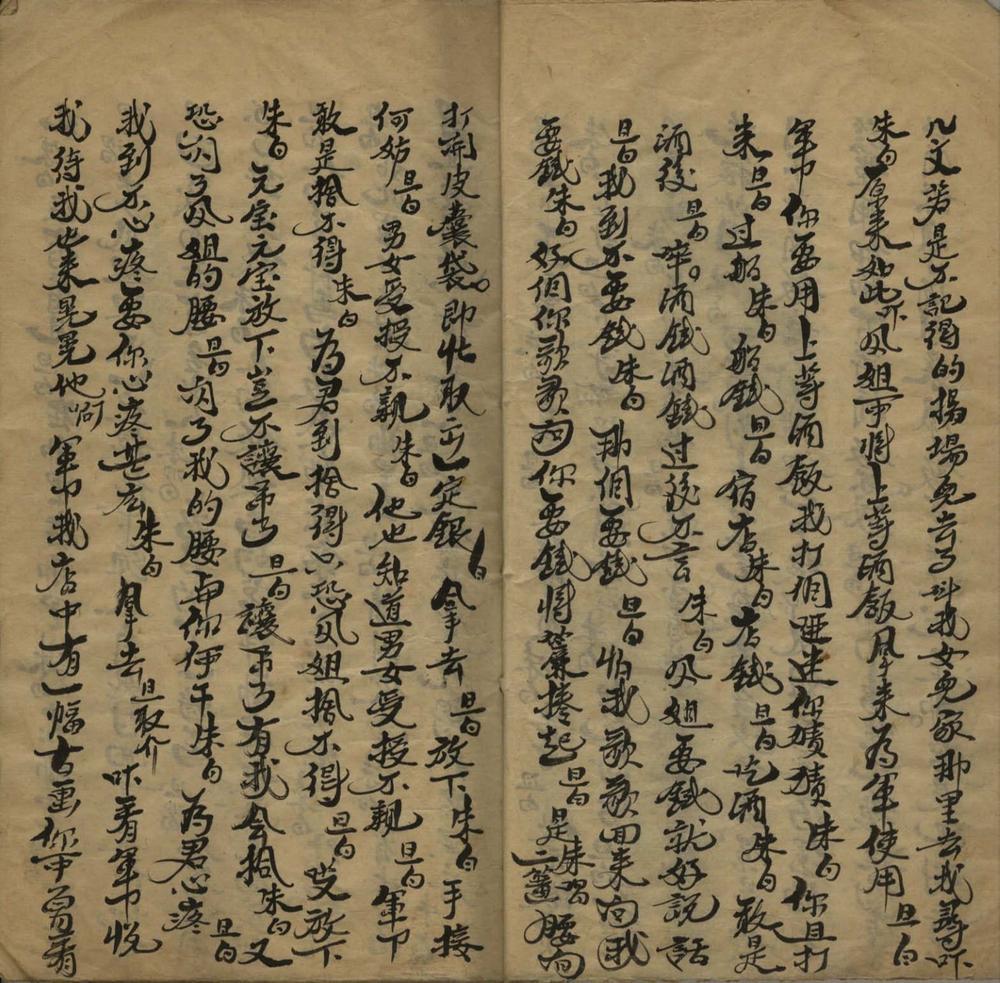 凡文笋是不記得的揚場兔去了叫我女兔家那里去我尋吓
朱白原来如此吓凤姐可將上等酒飯拿来為軍使用 旦白
軍下你要用上等酒飯我打個啞迷你猜猜 朱白 你且打
来 旦白 过船 朱白 船錢 旦白 宿店 朱白 店錢 旦白 吃酒 朱白 敢是
酒錢 旦白 啐 酒錢酒錢过後不言 朱白 凤姐要錢就好説話
旦白 我到不要錢 朱白 那個要錢 旦白 怕我歌歌回来向我
要錢 朱白 好個你歌歌向你要錢將簾捲起 旦白 是 朱唱 二簧 腰向
打開皮囊袋即忙取正一定銀 白 拿去 旦白 放下 朱白 手接
何妨 旦白 男女受授不親 朱白 他也知道男女受授不親 旦白 軍下
敢是捨不得 朱白 為君到捨得只恐凤姐捨不得 旦白 放下
朱白 元宝元宝放下豈不讓吊了 旦白 讓吊了有我会拾 朱白 又
恐闪了凤姐的腰 旦白 闪了我的腰与你何干 朱白 為君心疼 旦白
我到不心疼要你心疼甚広 朱白 拿去 旦取介 吓看軍下悦
我待我也来晃晃他 啊 軍下我店中有一幅古画你可曾看